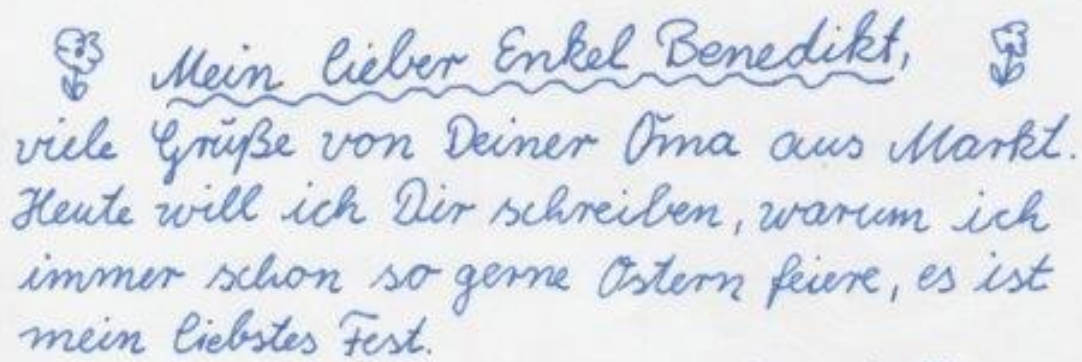 Mein lieber Enkel Benedikt,
viele Grüße von Deiner Oma aus Markt.
Heute will ich Dir schreiben, warum ich
immer schon so gerne Ostern feiere, es ist
mein liebstes Fest.